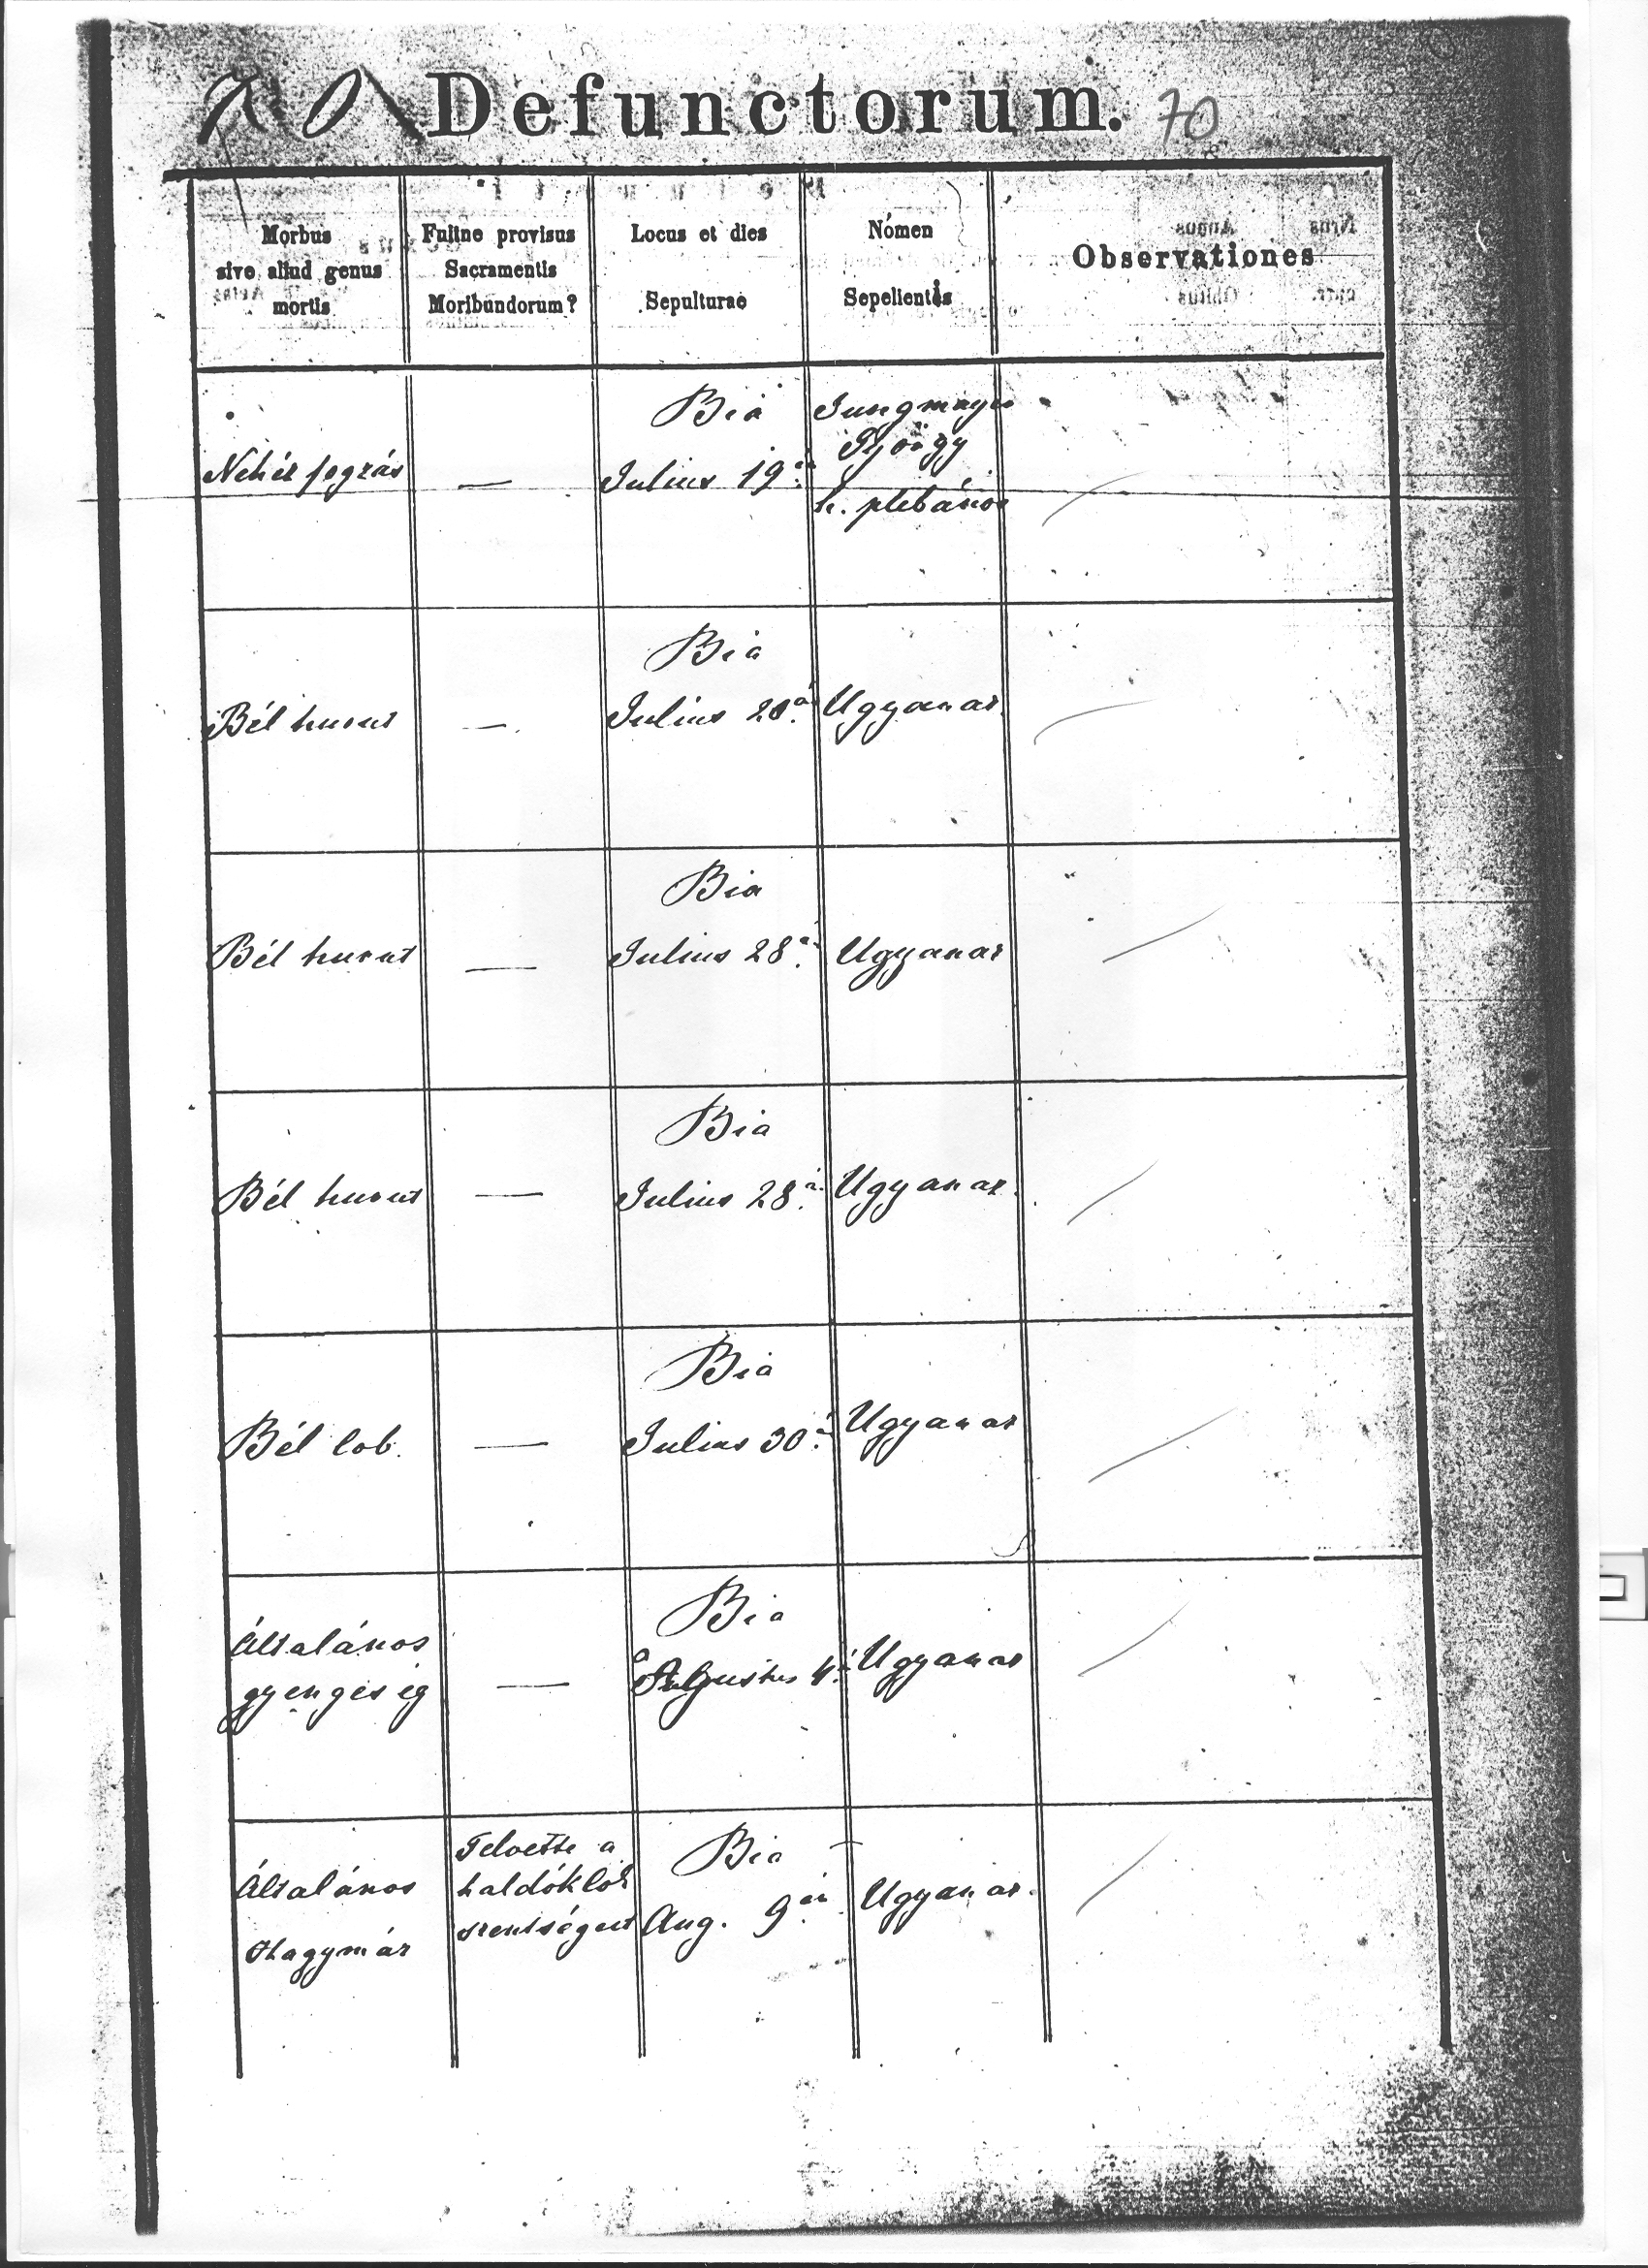 70 Defunctorum. 70
Morbus
sive aliud genus
mortis
Fuitne provisus
Sacramentis
Moribundorum?
Locus et dies
Sepulturae
Nomen
Sepelientis
Observationes
Nehéz fogzás
—
Bia
Julius 19én
Jungmayer
György
h. plébános
Bél hurut
—
Bia
Julius 20án
Ugyanaz
Bél hurut
—
Bia
Julius 28án
Ugyanaz
Bél hurut
—
Bia
Julius 28án
Ugyanaz
Bél lob
—
Bia
Julius 30án
Ugyanaz
Általános
gyengeség
—
Bia
Augustus 4én
Ugyanaz
Általános
Hagymáz
Felvette a
haldóklók
szentségeit
Bia
Aug. 9én
Ugyanaz